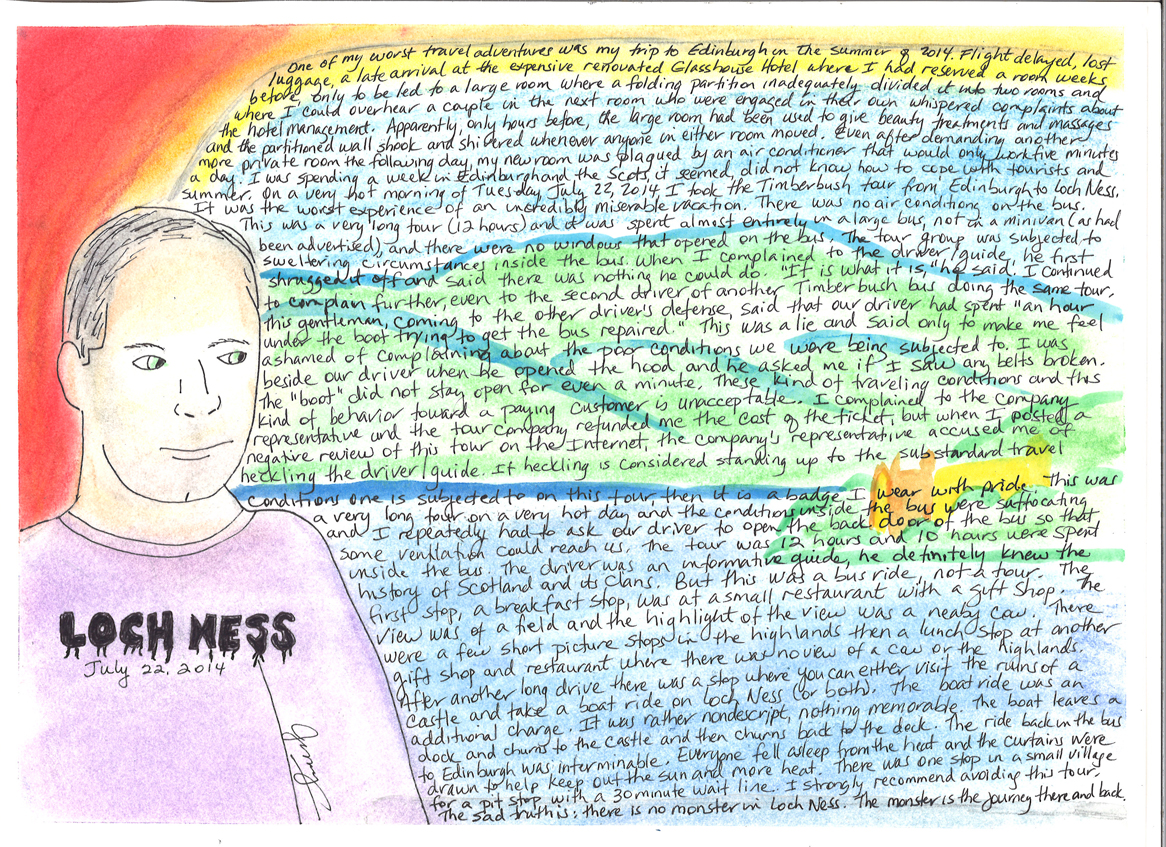 One of my worst travel adventures was my trip to Edinburgh in the summer of 2014. Flight delayed, lost
luggage, a late arrival at the expensive renovated Glasshouse Hotel where I had reserved a room weeks
before, only to be led to a large room where a folding partition inadequately divided it into two rooms and
where I could overhear a couple in the next room who were engaged in their own whispered complaints about
the hotel management. Apparently, only hours before, the large room had been used to give beauty treatments and massages
and the partitioned wall shook and shivered whenever anyone in either room moved. Even after demanding another
more private room the following day, my new room was plagued by an air conditioner that would only work five minutes
a day. I was spending a week in Edinburgh and the Scots, it seemed, did not know how to cope with tourists and
summer. On a very hot morning of Tuesday July 22, 2014 I took the Timberbush tour from Edinburgh to Loch Ness.
It was the worst experience of an incredibly miserable vacation. There was no air conditiong on the bus.
This was a very long tour (12 hours) and it was spent almost entirely in a large bus, not in a minivan (as had
been advertised) and there were no windows that opened on the bus. The tour group was subjected to
sweltering circumstances inside the bus. When I complained to the driver/guide, he first
shrugged it off and said there was nothing he could do. "It is what it is," he said. I continued
to complain further, even to the second driver of another Timberbush bus doing the same tour.
This gentleman, coming to the other driver's defense, said that our driver had spent "an hour
under the boot trying to get the bus repaired." This was a lie and said only to make me feel
ashamed of complaining about the poor conditions we were being subjected to. I was
beside our driver when he opened the hood and he asked me if I saw any belts broken.
The "boot" did not stay open for even a minute. These kind of traveling conditions and this
kind of behavior toward a paying customer is unacceptable. I complained to the company
representative and the tour company refunded me the cost of the ticket, but when I posted a
negative review of this tour on the Internet, the company's representative accused me of
heckling the driver/guide. If heckling is considered standing up to the substandard travel
conditions one is subjected to on this tour then it is a badge I wear with pride. This was
a very long tour on a very hot day and the conditions inside the bus were suffocating
and I repeatedly had to ask our driver to open the back door of the bus so that
some ventilation could reach us. The tour was 12 hours and 10 hours were spent
inside the bus. The driver was an informative guide, he definitely knew the
history of Scotland and its clans. But this was a bus ride, not a tour. The
first stop, a breakfast stop, was at a small restaurant with a gift shop. The
view was of a field and the highlight of the view was a neaby cow. There
were a few short picture stops in the highlands then a lunch stop at another
gift shop and restaurant where there was no view of a cow or the highlands.
After another long drive there was a stop where you can either visit the ruins of a
castle and take a boat ride on Loch Ness (or both). The boat ride was an
additional charge. It was rather nondescript, nothing memorable. The boat leaves a
dock and churns to the castle and then churns back to the dock. The ride back in the bus
to Edinburgh was interminable. Everyone fell asleep from the heat and the curtains were
drawn to help keep out the sun and more heat. There was one stop in a small village
for a pit stop with a 30 minute wait line. I strongly recommend avoiding this tour.
The sad truth is: there is no monster in Loch Ness. The monster is the journey there and back.
LOCH NESS
July 22, 2014